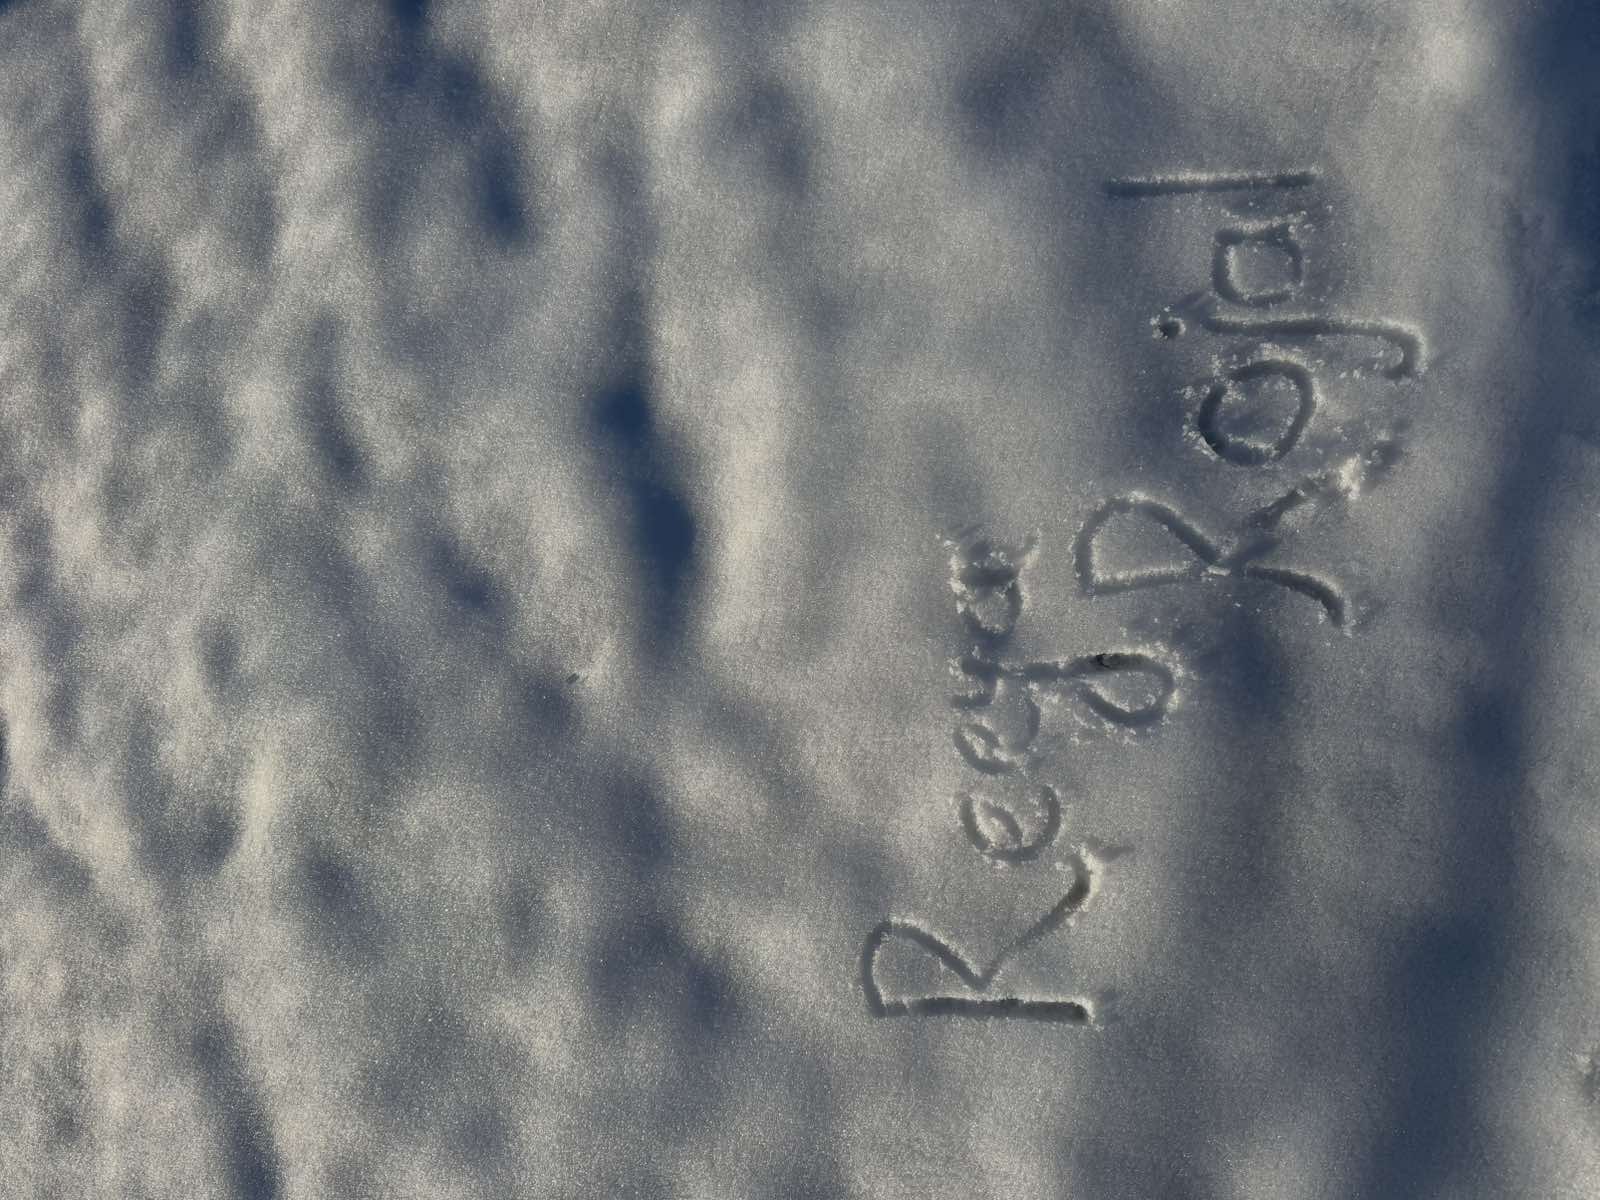 Reeya
Rojal